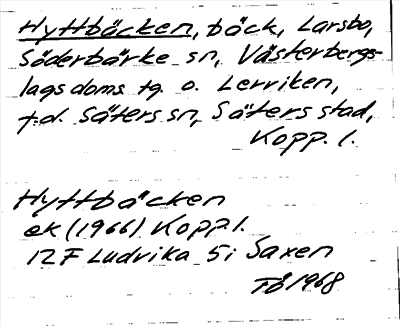 Hyttbäcken, bäck, Larsbo,
Söderbärke sn, Västerbergs-
lags doms tg o. Lerviken,
t.d. Säters sn, Säters stad,
Kopp. l.
Hyttbäcken
ek (1966) Kopp l.
12 F Ludvika 5 i Saxen
FÖ 1968